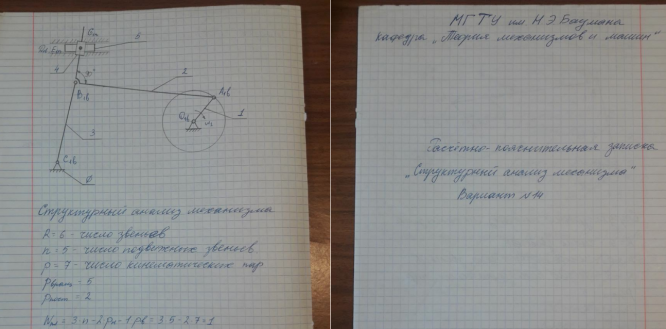 5
4
90°
2
B1,в
A1,в
1
3
C1,в
0
Структурный анализ механизма
k=6 - число звеньев
n=5 - число подвижных звеньев
p=7 - число кинематических пар
pвращ = 5
pпост = 2
МГТУ им Н.Э Баумана
кафедра „Теория механизмов и машин"
Расчётно-пояснительная записка
„Структурный анализ механизма"
Вариант №14